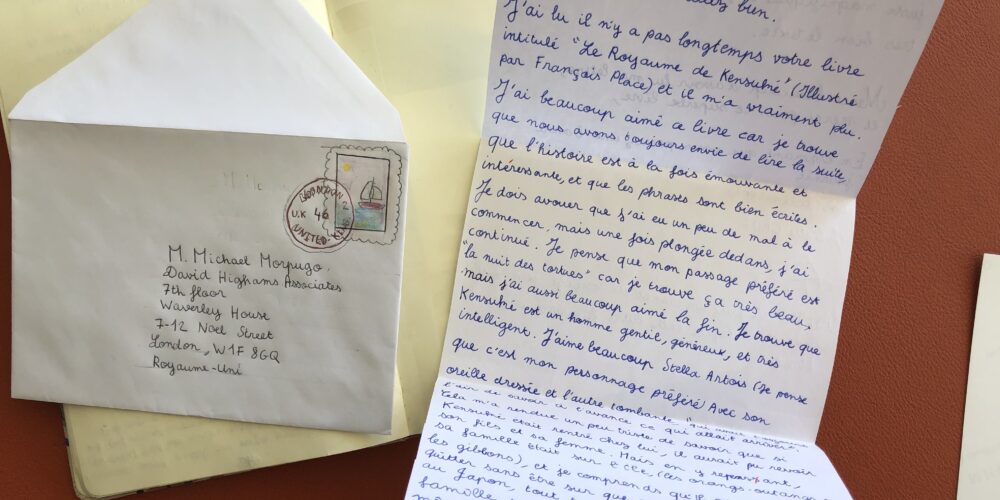 U.K 46
UNITED
M. Michael Morpugo
David Highams Associates
7th floor
Waverley House
7-12 Noël Street
London, W1F 8GQ
Royaume-Uni
bien.
J'ai lu il n'y a pas longtemps votre livre
intitulé "Le Royaume de Kensuké" (Illustré
par François Place) et il m'a vraiment plu.
J'ai beaucoup aimé ce livre car je trouve
que nous avons toujours envie de lire la suite,
que l'histoire est à la fois émouvante et
intéressante, et que les phrases sont bien écrites.
Je dois avouer que j'ai eu un peu de mal à le
commencer, mais une fois plongée dedans, j'ai
continué. Je pense que mon passage préféré est
"la nuit des tortues" car je trouve ça très beau,
mais j'ai aussi beaucoup aimé la fin. Je trouve que
Kensuké est un homme gentil, généreux, et très
intelligent. J'aime beaucoup Stella Artois (Je pense
que c'est mon personnage préféré) Avec son
oreille dressée et l'autre tombante
l'air de savoir à l'avance ce qui allait arriver.
Cela m'a rendue un peu triste de savoir que si
Kensuké était rentré chez lui, il aurait pu revoir
son fils et sa femme. Mais en y repensant,
sa famille était sur l'île, (les orangs-outangs
les gibbons), et je comprends qu'il
quitter sans être sur que
au Japon, tout
famille